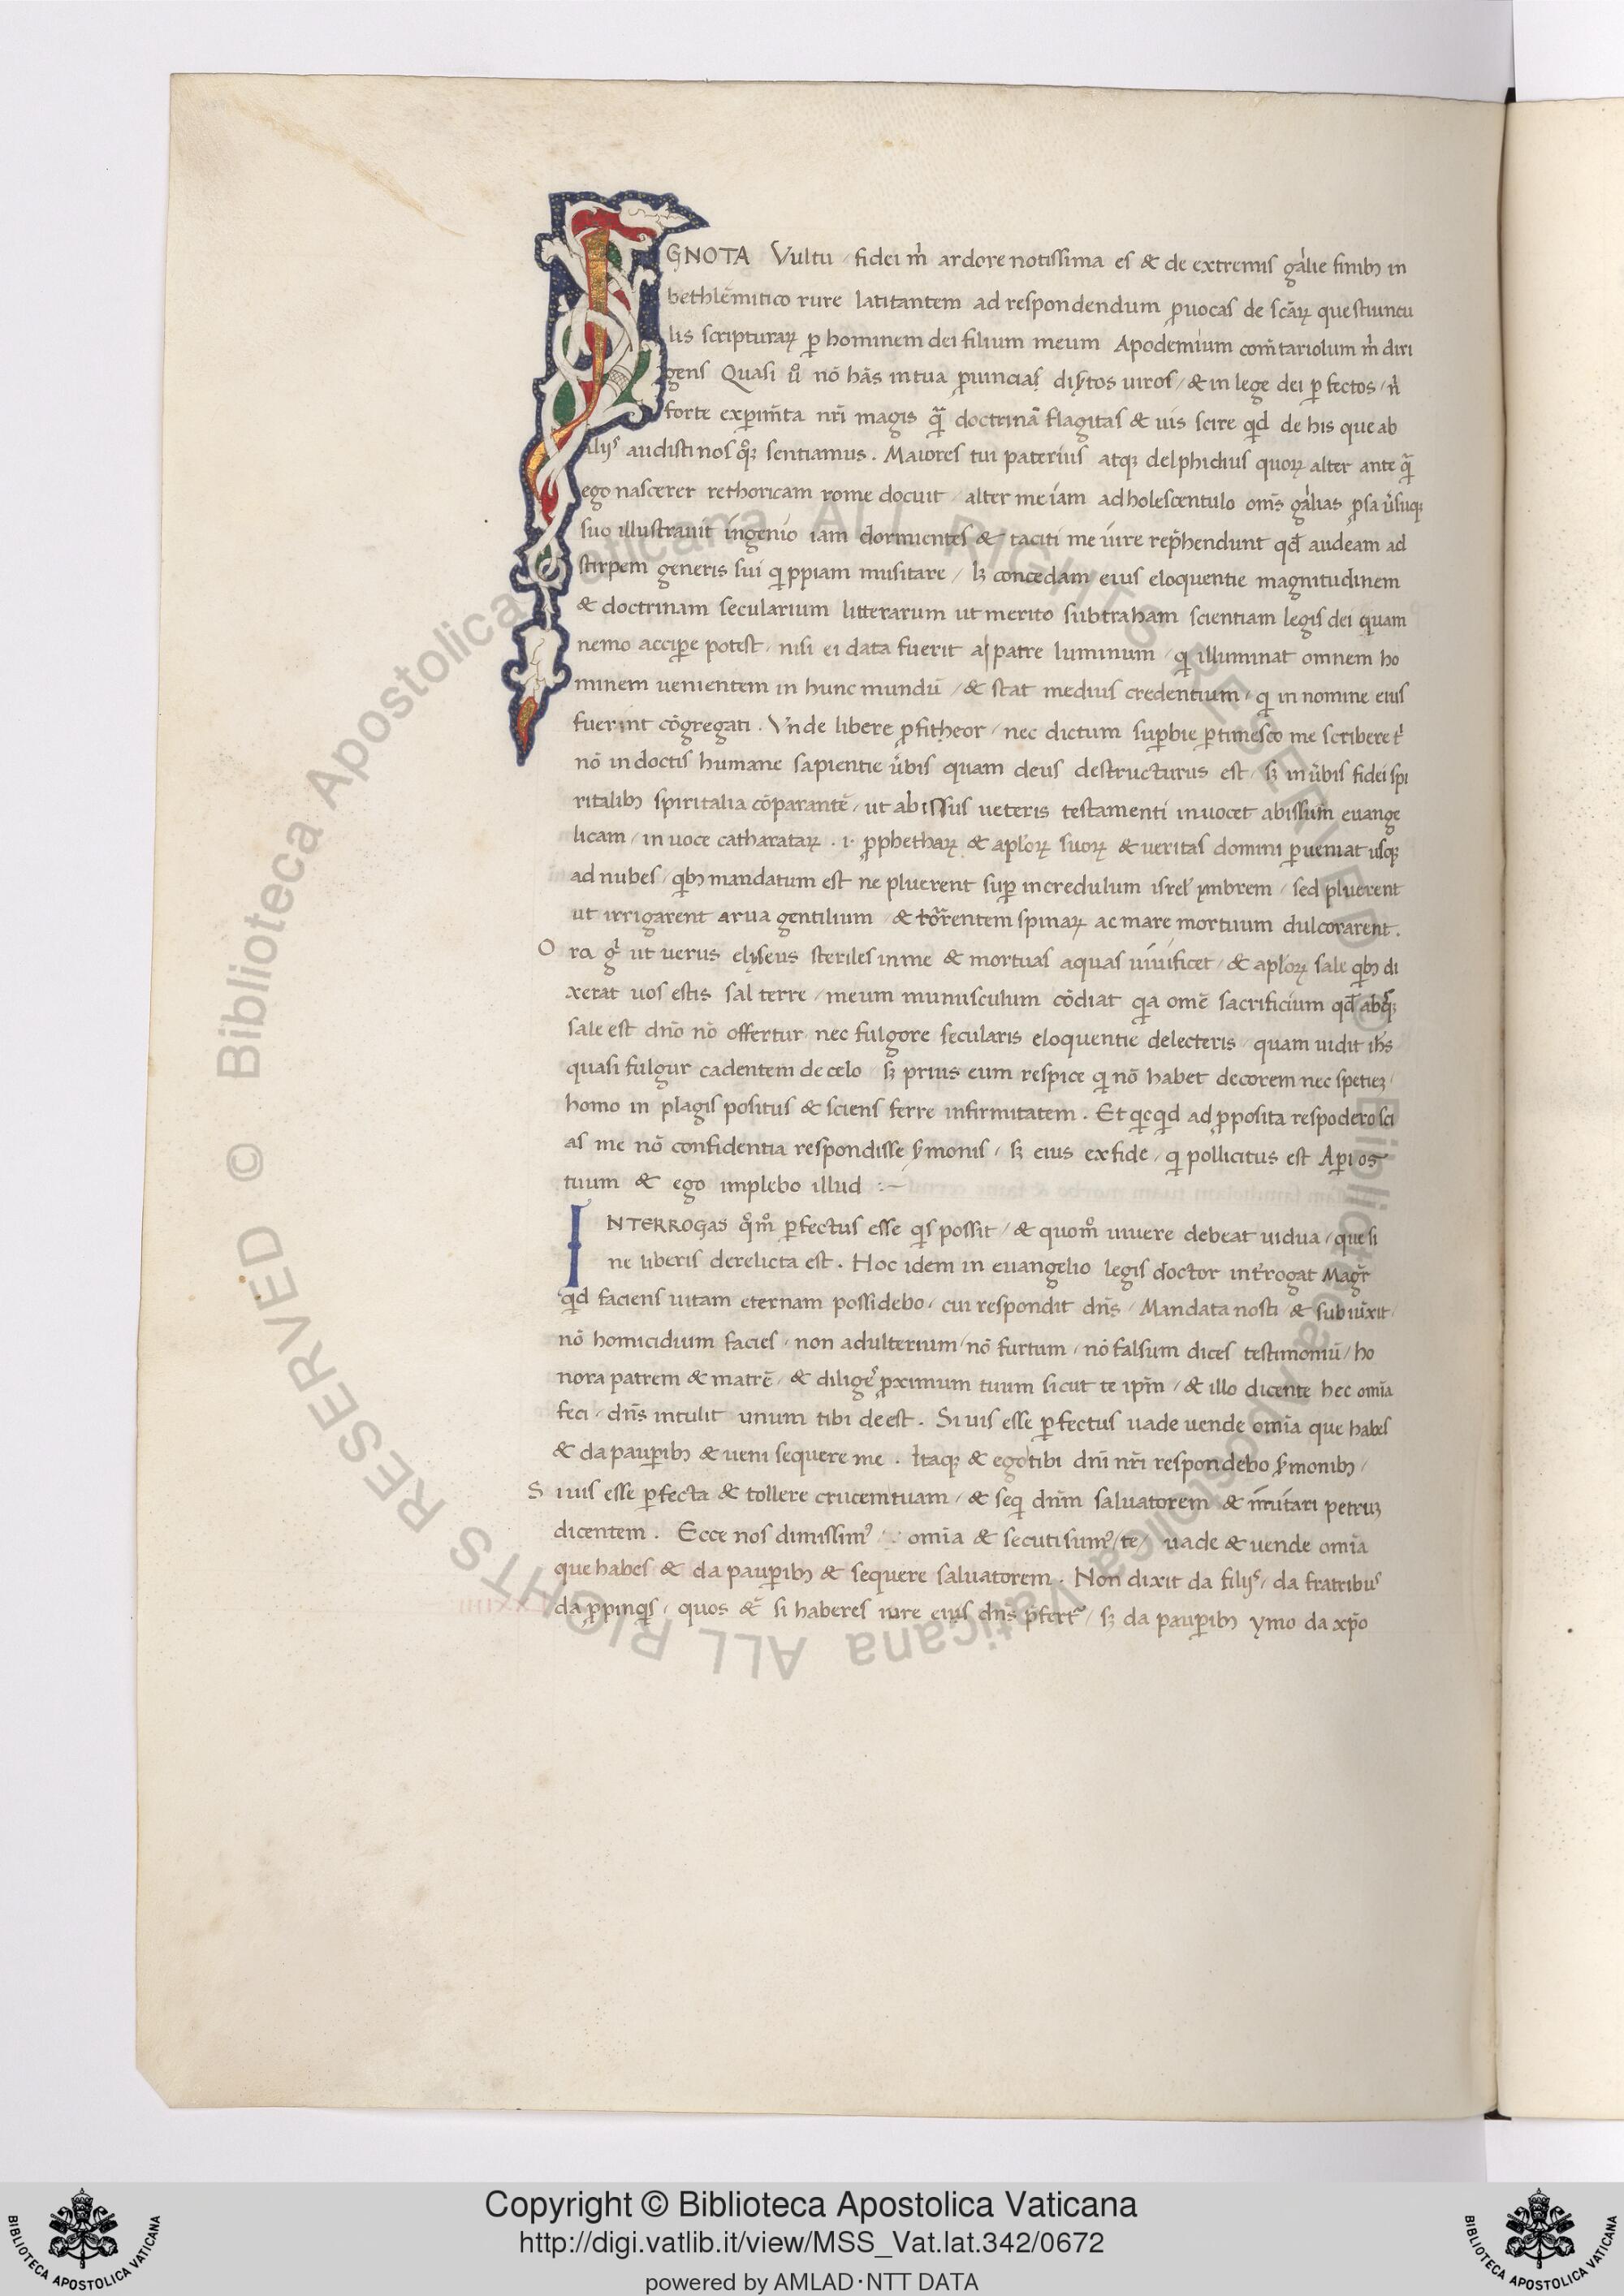 GNOTA Vultu / fidei m̃ ardore notissima es & de extremis gałlie finibꝫ in
bethlẽmitico rure latitantem ad respondendum ꝓuocas de scãꝝ questiuncu
lis scripturaꝝ ꝑ hominem dei filium meum Apodemium com̃tariolum m̃ diri
gens Quasi ů nõ hãs in tua ꝓuincias diẜtos uiros / & in lege dei ꝑfectos / ñ
forte exꝑim̃ta nr̃i magis q̃ doctrinã flagitas & uis scire qd de his que ab
alijs audisti nos qͦꝫ sentiamus . Maiores tui paterius atqꝫ delphidius quoꝝ alter ante q̃
ego nascerer rethoricam rome docuit / alter me iam adholescentulo om̃s gałlias ꝓsa ůsuqꝫ
suo illustrauit ingenio iam dormientes & taciti me iure rep̃hendunt qđ audeam ad
stirpem generis sui qippiam musitare / lꝫ concedam eius eloquentie magnitudinem
& doctrinam secularium litterarum ut merito subtraham scientiam legis dei quam
nemo acciꝑe potest / nisi ei data fuerit a patre luminum / qi illuminat omnem ho
minem uenientem in hunc mundũ / & stat medius credentium / qi in nomine eius
fuerint cõgregati . Vnde libere ꝓfitheor / nec dictum suꝑbie ꝑtimesco me scribere t'
nõ in doctis humane sapientie ůbis quam deus destructurus est / sꝫ in ůbis fidei spi
ritalibꝫ spiritalia cõparantẽ / ut abissus ueteris testamenti inuocet abissum euange
licam / in uoce catharataꝝ . i . ꝓphethaꝝ & aploꝝ suoꝝ & ueritas domini ꝑueniat usqꝫ
ad nubes / qibꝫ mandatum est ne pluerent suꝑ incredulum isrel ymbrem / sed pluerent
ut irrigarent arua gentilium / & torrentem spinaꝝ ac mare mortuum dulcorarent .
Ora g̊ ut uerus elyseus steriles in me & mortuas aquas uiuificet / & aploꝝ sale qibꝫ di
xerat uos estis sal terre / meum munusculum cõdiat qia omẽ sacrificium qđ absqꝫ
sale est dño nõ offertur nec fulgore secularis eloquentie delecteris / quam uidit ihs
quasi fulgur cadentem de celo / sꝫ prius eum respice qi nõ habet decorem nec spetieꝫ /
homo in plagis positus & sciens ferre infirmitatem . Et qicqid ad ꝓposita respõdero sci
as me nõ confidentia respondisse ẜmonis / sꝫ eius ex fide / qi pollicitus est Aꝑi os
tuum & ego implebo illud :~
INTERROGAS qͦmͦ ꝑfectus esse qis possit / & quomͦ uiuere debeat uidua / que si
ne liberis derelicta est . Hoc idem in euangelio legis doctor int̃rogat Magr̃
qid faciens uitam eternam possidebo / cui respondit dñs / Mandata nosti & subiũxit /
nõ homicidium facies / non adulterium / nõ furtum / nõ falsum dices testimoniũ / ho
nora patrem & matrẽ / & diliges ꝓximum tuum sicut te ip̃m / & illo dicente hec om̃ia
feci / dñs intulit unum tibi deest . Si uis esse ꝑfectus uade uende om̃ia que habes
& da pauꝑibꝫ & ueni sequere me . Itaqꝫ & ego tibi dñi nr̃i respondebo ẜmonibꝫ /
Si uis esse ꝑfecta & tollere crucem tuam / & seqi dñm saluatorem & imitari petruꝫ
dicentem . Ecce nos dimissim' om̃ia & secuti sum' te / uade & uende om̃ia
que habes & da pauꝑibꝫ & sequere saluatorem . Non dixit da filijs / da fratribus
da ꝓpinqis / quos & si haberes iure eius dñs p̃fert' / sꝫ da pauꝑibꝫ ymo da xp̃o
© Biblioteca Apostolica Vaticana ALL RIGHTS RESERVED
© Biblioteca Apostolica Vaticana ALL RIGHTS RESERVED
Copyright © Biblioteca Apostolica Vaticana
http://digi.vatlib.it/view/MSS_Vat.lat.342/0672
powered by AMLAD·NTT DATA
BIBLIOTECA APOSTOLICA VATICANA
BIBLIOTECA APOSTOLICA VATICANA